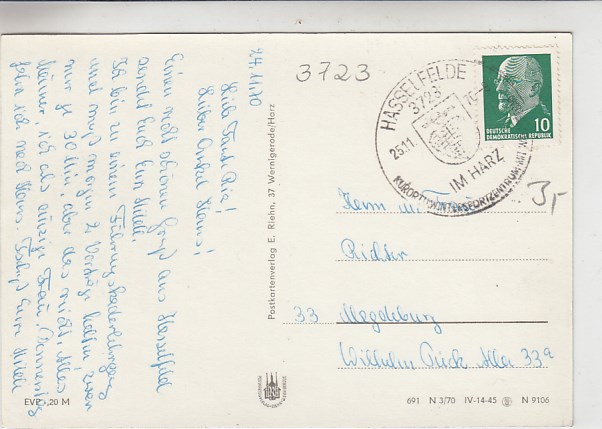 24.11.70
Liebe Tante Pia!
Lieber Onkel Hans!
Einen recht schönen Gruß aus Hasselfelde
sendet Euch Eure Mitell.
Ich bin zu einem Führungskaderlehrgang
und muß morgen 2 Vorträge halten, zwar
nur je 30 Min, aber das reicht. Alles
Männer, ich als einzige Frau. Donnerstag
fahre ich nach Hause. Tschüß Eure Mitell
EVP -,20 M
Postkartenverlag E. Riehn, 37 Wernigerode/Harz
3723
HASSELFELDE
3723
25.11.
IM HARZ
KURORT U. WINTERSPORTZENTRUM
DEUTSCHE
DEMOKRATISCHE REPUBLIK
10
3,-
Richter
33 Magdeburg
Wilhelm Pieck Alle 33a
691 N 3/70 IV-14-45 N 9106